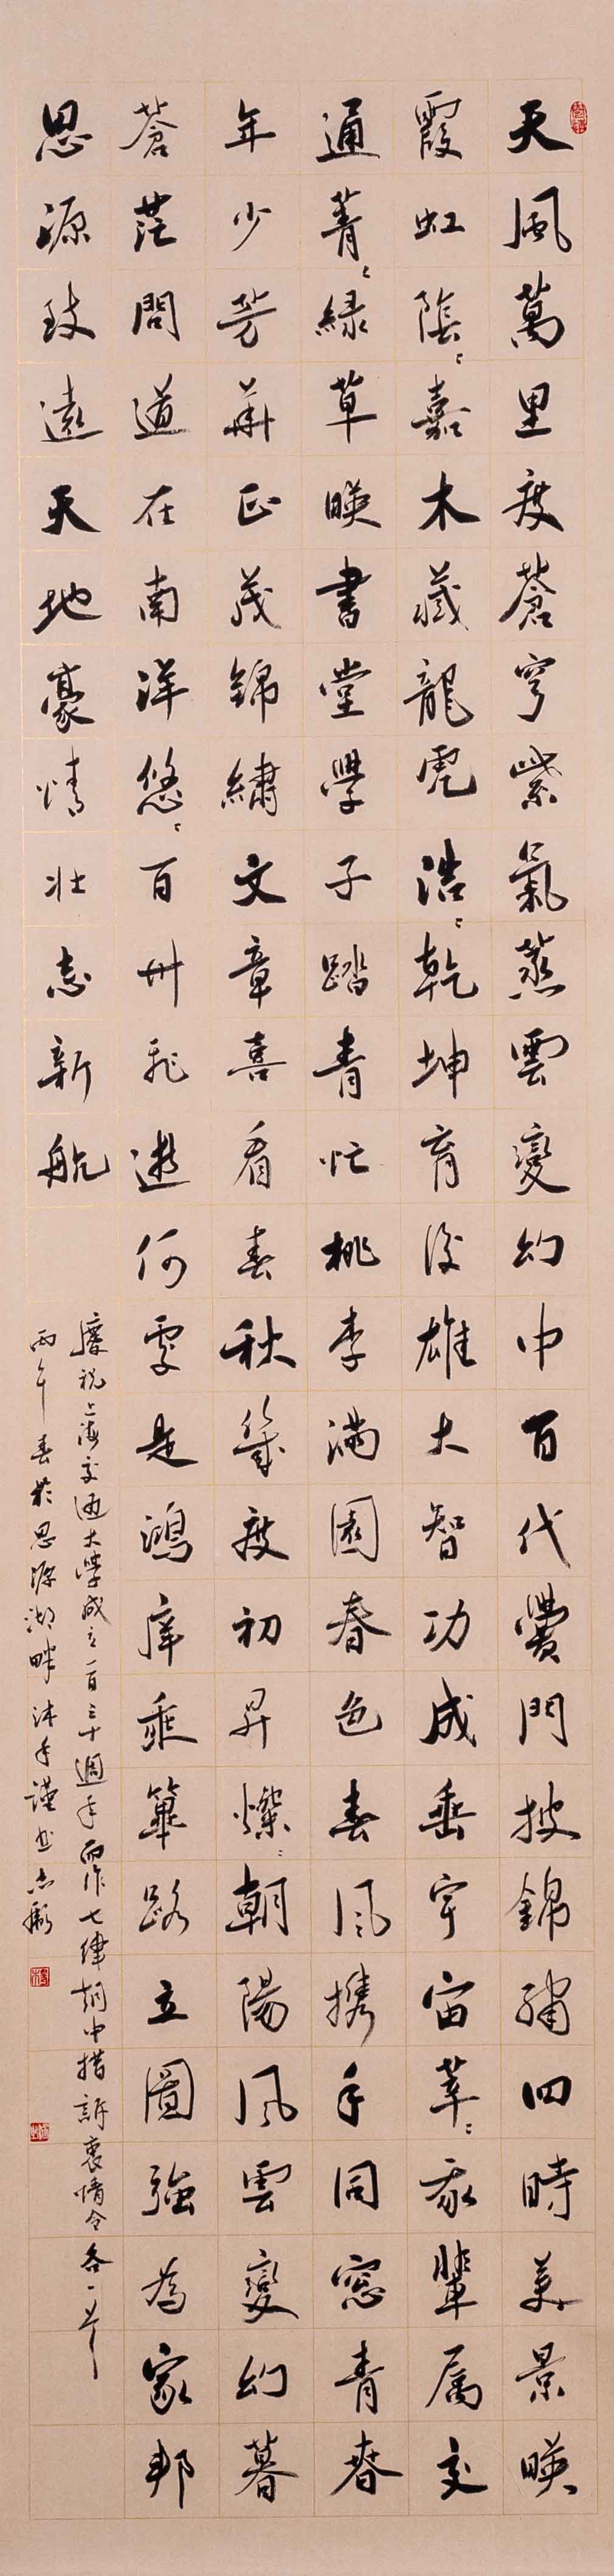 天風萬里度蒼穹紫氣蒸雲變幻中百代黌門披錦繡四時美景暎
霞虹陰〻嘉木藏龍虎浩〻乾坤育俊雄大智功成垂宇宙莘〻我輩属交
通菁〻緑草暎書堂學子踏青忙桃李滿園春色春風携手同窓青春
年少芳華正茂錦繡文章喜看春秋幾度初昇燦〻朝陽風雲變幻暮
蒼茫問道在南洋悠〻百卅飛逝何處是鴻庠乘篳路立圖強為家邦
思源致遠天地豪情壯志新航
慶祝上海交通大學成立一百三十週年而作七律朝中措訴衷情令各一首
丙午春於思源湖畔沐手謹書